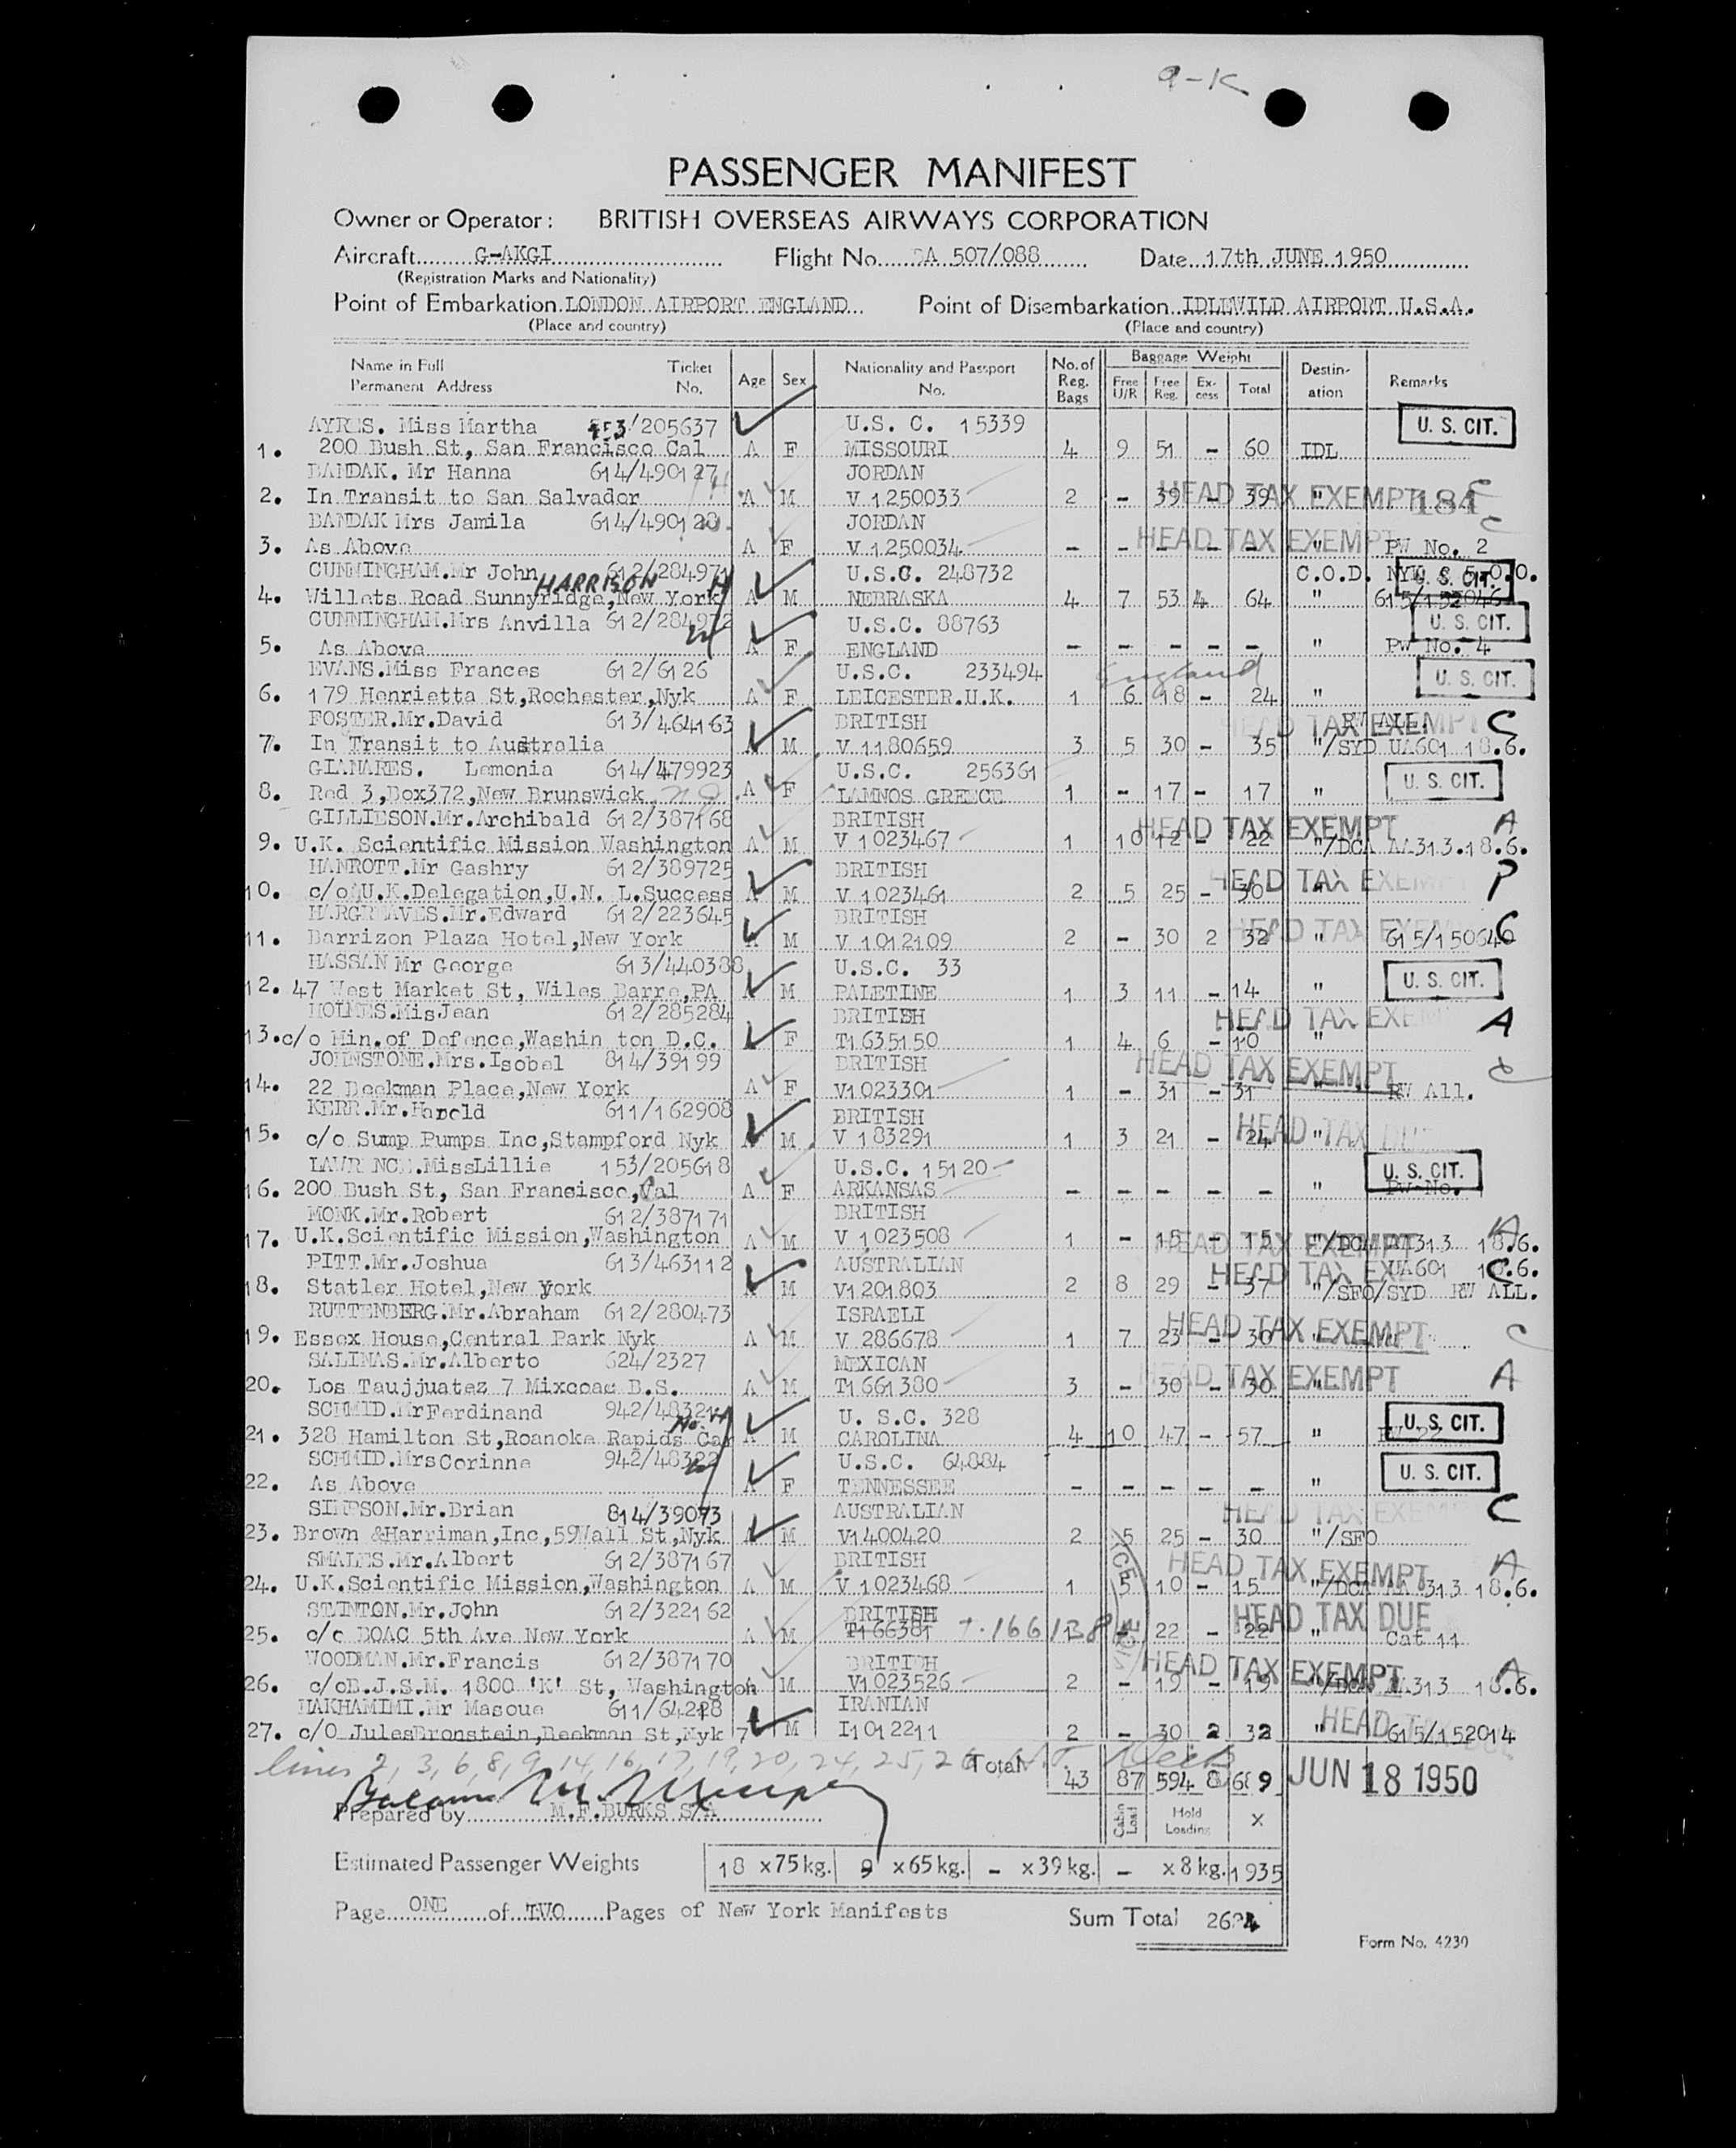 9-K
PASSENGER MANIFEST
Owner or Operator: BRITISH OVERSEAS AIRWAYS CORPORATION
Aircraft G-AKGI Flight No. BA 507/088 Date 17th JUNE 1950
(Registration Marks and Nationality)
Point of Embarkation LONDON AIRPORT ENGLAND Point of Disembarkation IDLEWILD AIRPORT U.S.A.
(Place and country) (Place and country)
Name in Full Permanent Address Ticket No. Age Sex Nationality and Passport No. No. of Reg. Bags Baggage Weight Free U/R Free Reg. Excess Total Destination Remarks
AYRES. Miss Martha 153/205637 U.S. C. 15339 U. S. CIT.
1. 200 Bush St, San Francisco Cal A F MISSOURI 4 9 51 - 60 IDL
BANDAK. Mr Hanna 614/490127 JORDAN
2. In Transit to San Salvador A M V 1250033 2 - 39 - 39 " HEAD TAX EXEMPT 184 C
BANDAK Mrs Jamila 614/490128 JORDAN C
3. As Above A F V 1250034 - - - - - " HEAD TAX EXEMPT PW No. 2
CUNNINGHAM.Mr John HARRISON 612/284971 U.S.C. 248732 C.O.D. NYK U. S. CIT.
4. Willets Road Sunnyridge,New York A M NEBRASKA 4 7 53 4 64 " 615/152046
CUNNINGHAM.Mrs Anvilla 612/284972 U.S.C. 88763 U. S. CIT.
5. As Above A F ENGLAND - - - - - " PW No. 4
EVANS.Miss Frances 612/6126 U.S.C. 233494 England U. S. CIT.
6. 179 Henrietta St,Rochester,Nyk A F LEICESTER.U.K. 1 6 18 - 24 "
FOSTER.Mr.David 613/464163 BRITISH HEAD TAX EXEMPT RW ALL. C
7. In Transit to Australia A M V 1180659 3 5 30 - 35 "/SYD UA601 18.6.
GIANARES. Lemonia 614/479923 U.S.C. 256361 U. S. CIT.
8. Red 3,Box372,New Brunswick NJ A F LAMNOS GREECE 1 - 17 - 17 "
GILLIESON.Mr.Archibald 612/387168 BRITISH HEAD TAX EXEMPT A
9. U.K. Scientific Mission Washington A M V 1023467 1 10 12 - 22 "/DCA AA313.18.6.
HANROTT.Mr Gashry 612/389725 BRITISH HEAD TAX EXEMPT P
10. c/o U.K.Delegation,U.N. L.Success A M V 1023461 2 5 25 - 30 "
HARGREAVES.Mr.Edward 612/223645 BRITISH HEAD TAX EXEMPT C
11. Barrizon Plaza Hotel,New York A M V 1012109 2 - 30 2 32 " 615/150640
HASSAN Mr George 613/440388 U.S.C. 33 U. S. CIT.
12. 47 West Market St, Wiles Barre,PA A M PALETINE 1 3 11 - 14 "
HOLMES.MisJean 612/285284 BRITISH HEAD TAX EXEMPT A
13. c/o Min.of Defence,Washin ton D.C. A F T1635150 1 4 6 - 10 "
JOHNSTONE.Mrs.Isobel 814/39199 BRITISH HEAD TAX EXEMPT C
14. 22 Beekman Place,New York A F V1023301 1 - 31 - 31 " RW All.
KERR.Mr.Harold 611/162908 BRITISH HEAD TAX DUE
15. c/o Sump Pumps Inc,Stampford Nyk A M V 183291 1 3 21 - 24 "
LAWRENCE.MissLillie 153/205618 U.S.C. 15120 U. S. CIT.
16. 200 Bush St, San Francisco,Cal A F ARKANSAS - - - - - " PW No. 1
MONK.Mr.Robert 612/387171 BRITISH A
17. U.K.Scientific Mission,Washington A M V 1023508 1 - 15 - 15 HEAD TAX EXEMPT "/DCA AA313 18.6.
PITT.Mr.Joshua 613/463112 AUSTRALIAN HEAD TAX EXEMPT UA601 18.6. C
18. Statler Hotel,New York A M V1201803 2 8 29 - 37 "/SFO/SYD RW ALL.
RUTTENBERG.Mr.Abraham 612/280473 ISRAELI
19. Essex House,Central Park Nyk A M V 286678 1 7 23 - 30 " HEAD TAX EXEMPT C
SALINAS.Mr.Alberto 624/2327 MEXICAN
20. Los Taujjuatez 7 Mixcoac B.S. A M T1661380 3 - 30 - 30 " HEAD TAX EXEMPT A
SCHMID.MrFerdinand 942/48321 U. S.C. 328 U. S. CIT.
21. 328 Hamilton St,Roanoke Rapids Car A M CAROLINA 4 10 47 - 57 "
SCHMID.MrsCorinne 942/48322 U.S.C. 64884 U. S. CIT.
22. As Above A F TENNESSEE - - - - - "
SIMPSON.Mr.Brian 814/39073 AUSTRALIAN HEAD TAX EXEMPT C
23. Brown &Harriman,Inc,59Wall St,Nyk A M V1400420 2 5 25 - 30 "/SFO
SMALES.Mr.Albert 612/387167 BRITISH HEAD TAX EXEMPT A
24. U.K.Scientific Mission,Washington A M V 1023468 1 5 10 - 15 "/DCA AA 313 18.6.
STAINTON.Mr.John 612/322162 BRITISH HEAD TAX DUE
25. c/c BOAC 5th Ave New York A M T166381 T.166138 1 - 22 - 22 " Cat 11
WOODMAN.Mr.Francis 612/387170 BRITISH HEAD TAX EXEMPT A
26. c/oB.J.S.M. 1800 'K' St, Washington A M V1023526 2 - 19 - 19 "/DCA AA313 18.6.
HAKHAMIMI.Mr Masoue 611/64228 IRANIAN HEAD TAX
27. c/O JulesBronstein,Beekman St,Nyk 7 M I1012211 2 - 30 2 32 " 615/152014
lines 2, 3, 6, 8, 9, 14, 16, 17, 19, 20, 24, 25, 26
Total 43 87 594 8 689 JUN 18 1950
Prepared by M.F.BURKS S/A Cabin Load Hold Loading X
Estimated Passenger Weights 18 x75kg. 9 x65kg. - x39kg. - x8kg. 1935
Page ONE of TWO Pages of New York Manifests Sum Total
Form No. 4230